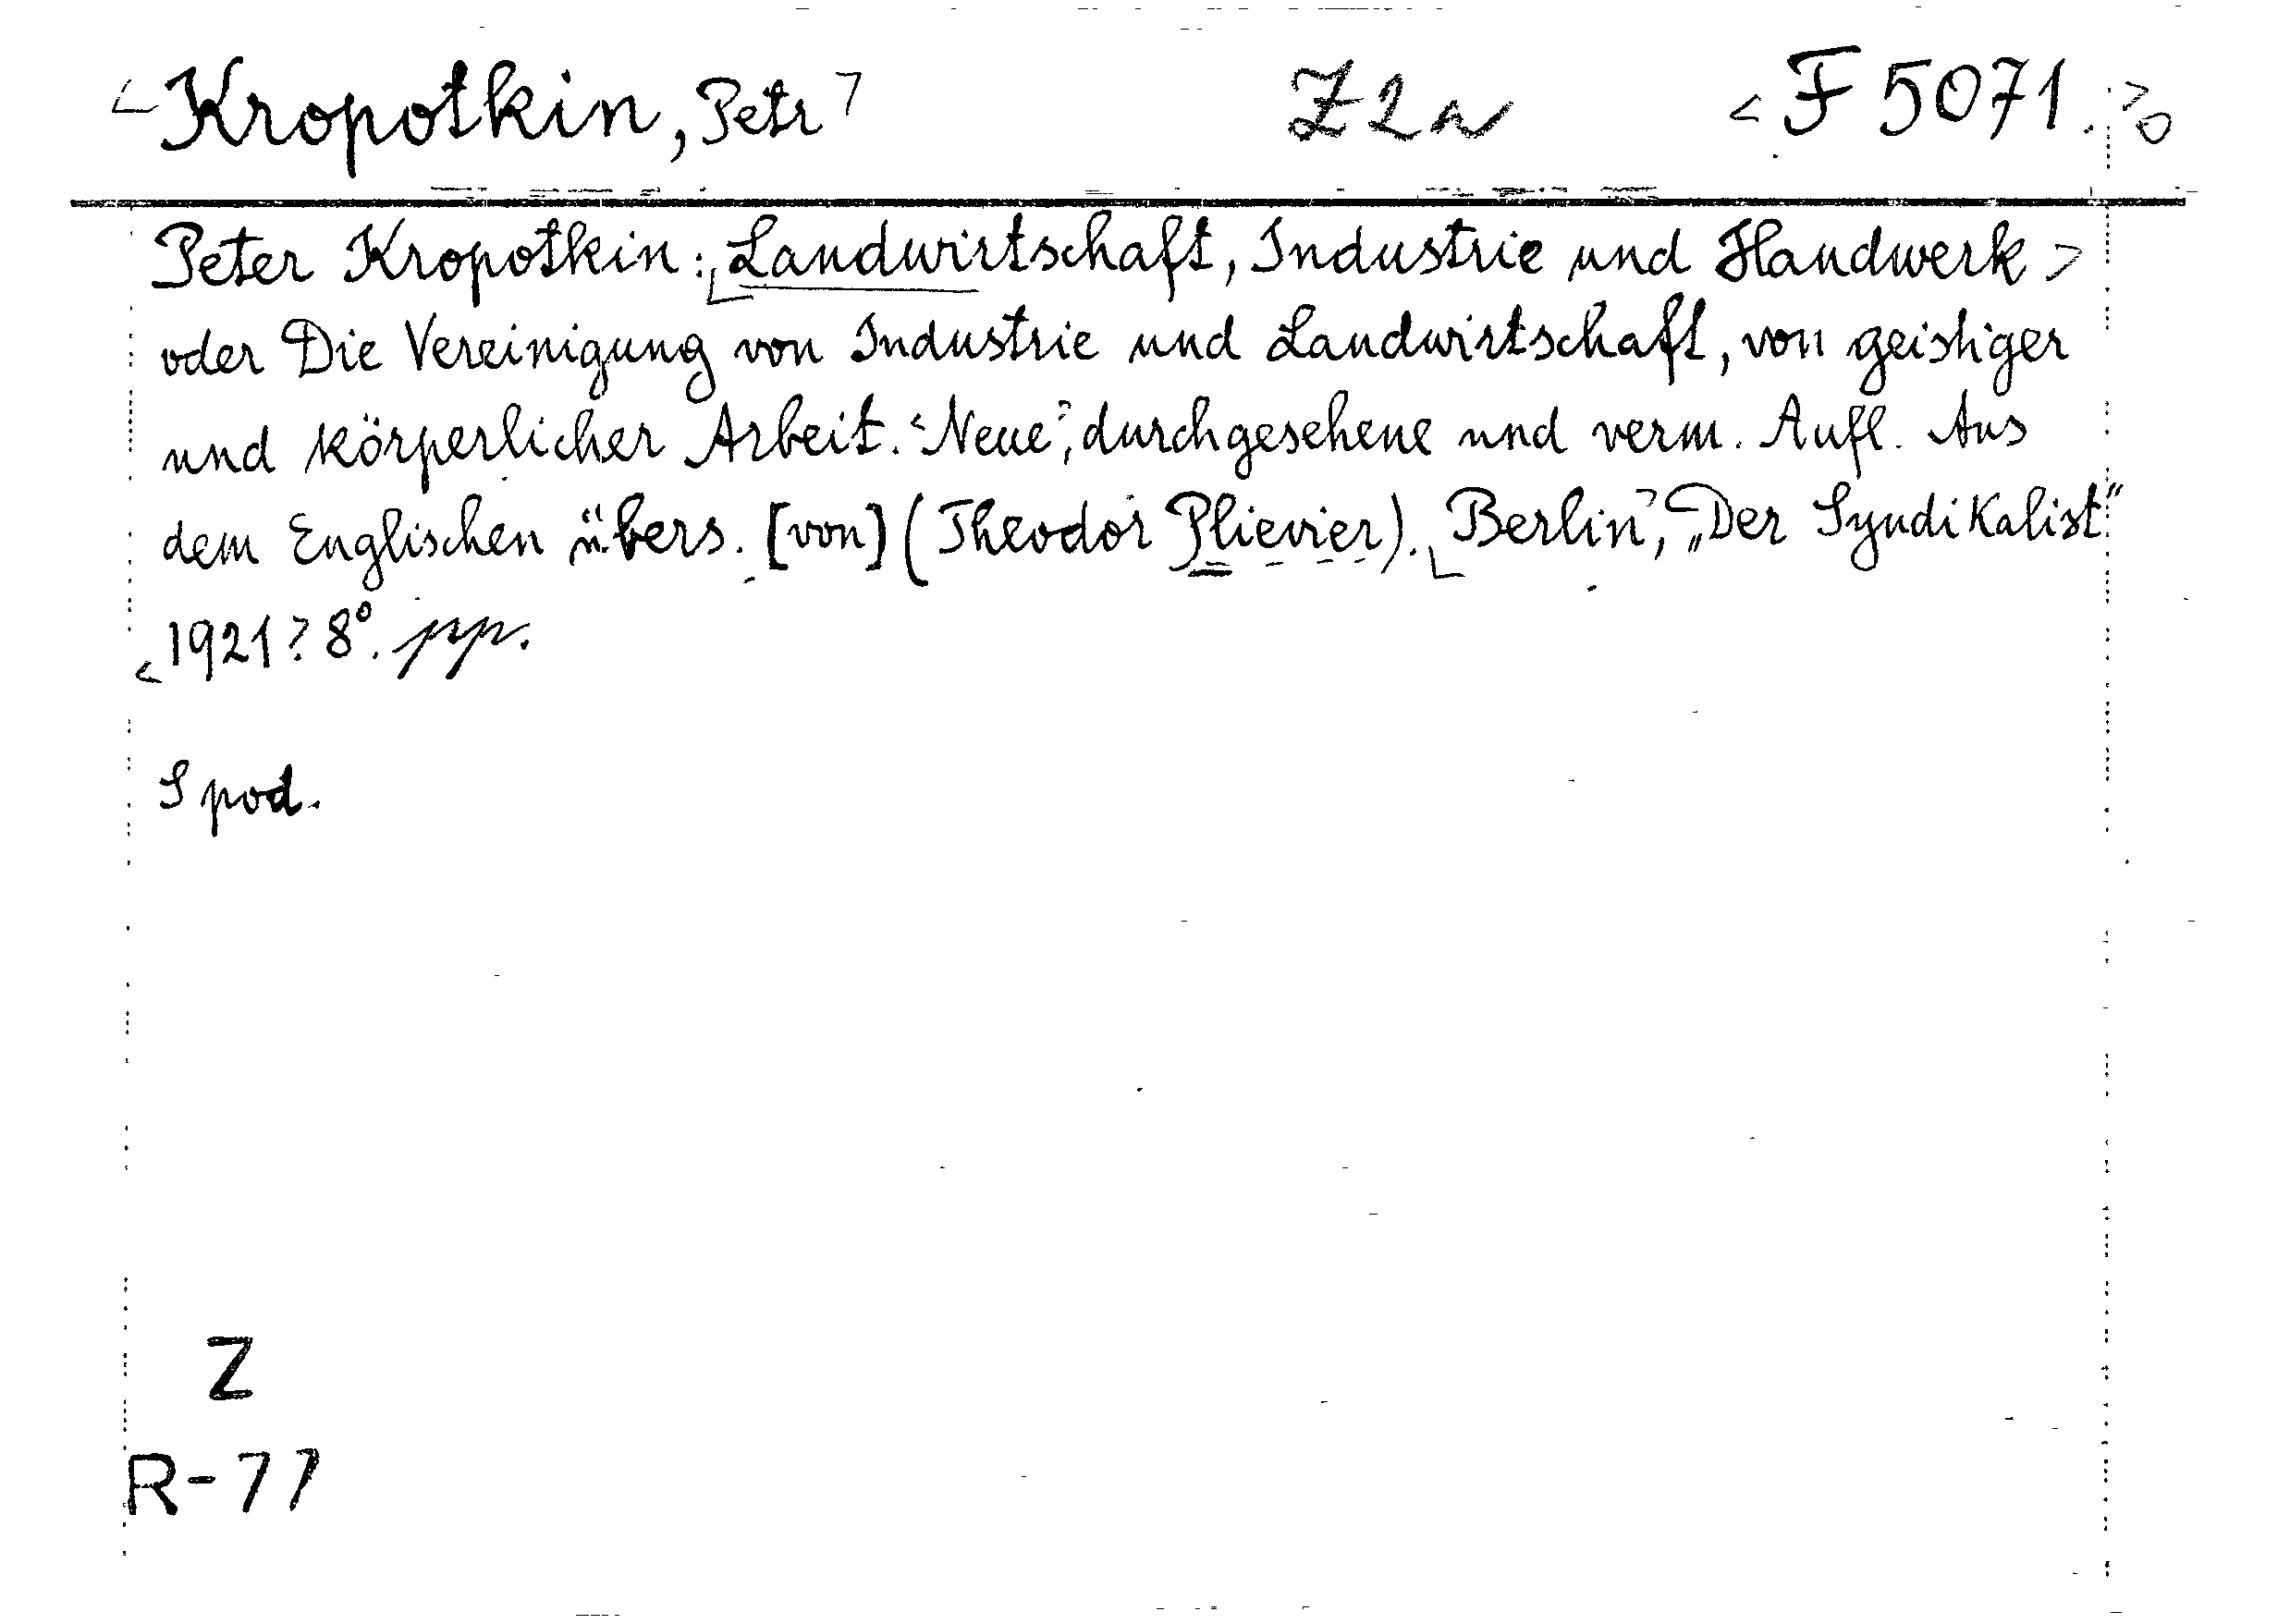 <Kropotkin, Petr> Z2a <F 5071.>o
Peter Kropotkin: <Landwirtschaft, Industrie und Handwerk>
oder Die Vereinigung von Industrie und Landwirtschaft, von geistiger
und körperlicher Arbeit. <Neue>, durchgesehene und verm. Aufl. Aus
dem Englischen übers. [von] (Theodor Plievier). <Berlin>, <„Der Syndikalist“
<1921? 8°. pp.
S pod.
Z
R-77